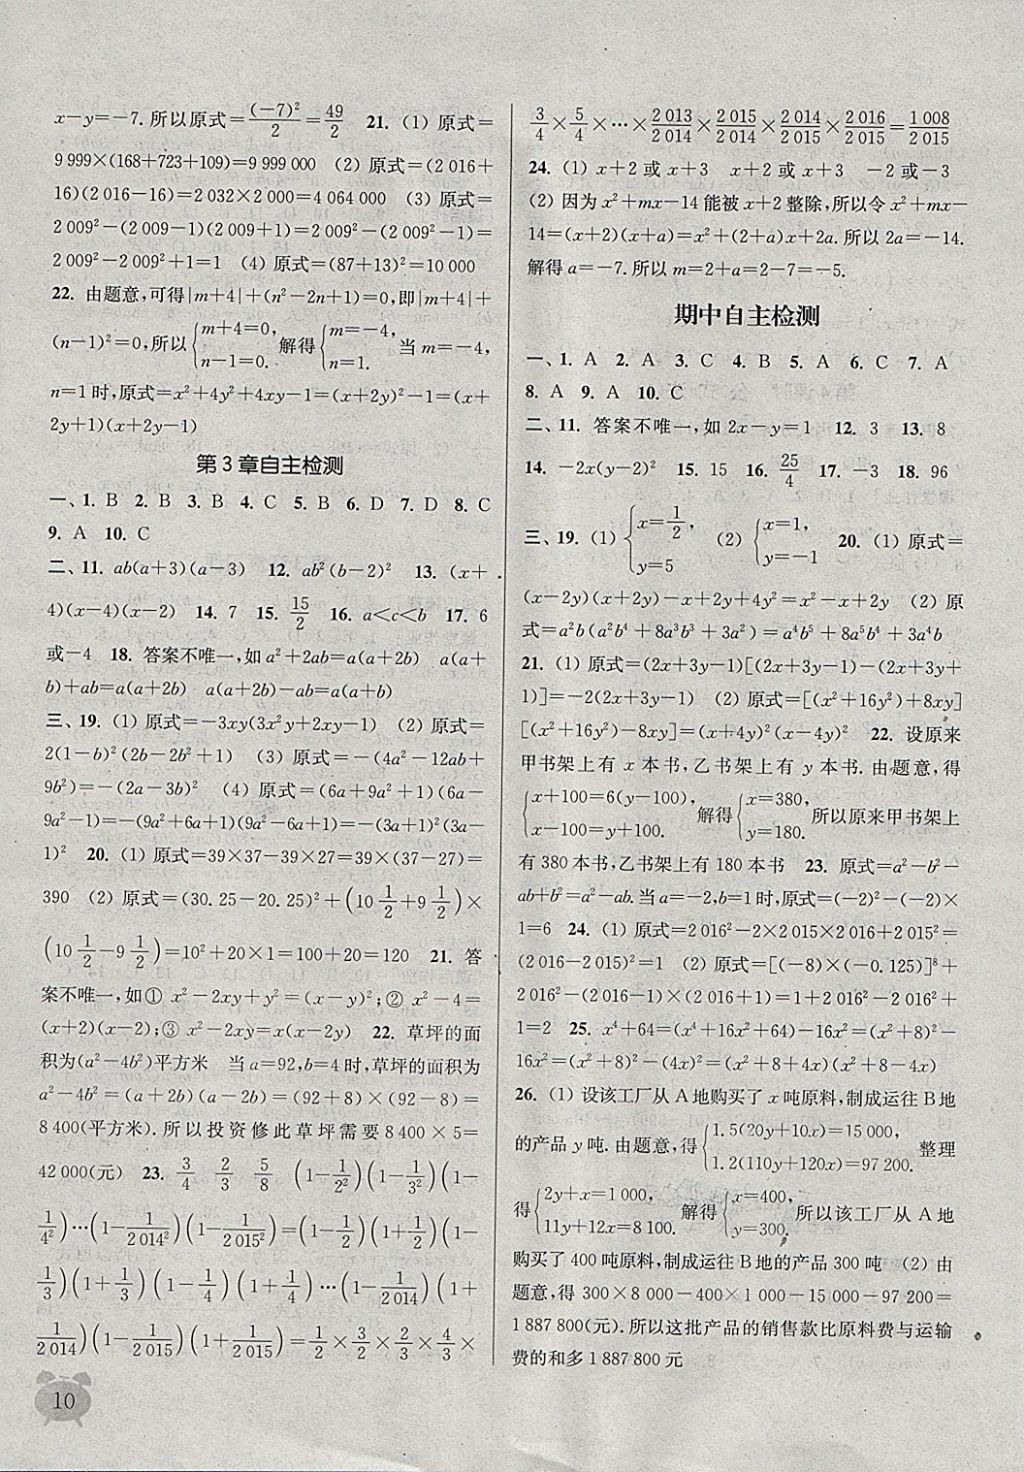 x－y＝－7. 所以原式＝(－7)²/2＝49/2　21. (1) 原式＝
9 999×(168＋723＋109)＝9 999 000　(2) 原式＝(2 016＋
16)(2 016－16)＝2 032×2 000＝4 064 000　(3) 原式＝
2 009²－(2 009－1)(2 009＋1)＝2 009²－(2 009²－1)＝
2 009²－2 009²＋1＝1　(4) 原式＝(87＋13)²＝10 000
22. 由题意,可得|m＋4|＋(n²－2n＋1)＝0,即|m＋4|＋
(n－1)²＝0,所以{m＋4＝0, n－1＝0. 解得{m＝－4, n＝1. 当 m＝－4,
n＝1 时,原式＝x²＋4y²＋4xy－1＝(x＋2y)²－1＝(x＋
2y＋1)(x＋2y－1)
第 3 章自主检测
一、1. B　2. B　3. B　4. C　5. B　6. D　7. D　8. C
9. A　10. C
二、11. ab(a＋3)(a－3)　12. ab²(b－2)²　13. (x＋
4)(x－4)(x－2)　14. 7　15. 15/2　16. a＜c＜b　17. 6
或－4　18. 答案不唯一,如 a²＋2ab＝a(a＋2b)　a(a＋
b)＋ab＝a(a＋2b)　a(a＋2b)－ab＝a(a＋b)
三、19. (1) 原式＝－3xy(3x²y＋2xy－1)　(2) 原式＝
2(1－b)²(2b－2b²＋1)　(3) 原式＝－(4a²－12ab＋
9b²)＝－(2a－3b)²　(4) 原式＝(6a＋9a²＋1)(6a－
9a²－1)＝－(9a²＋6a＋1)(9a²－6a＋1)＝－(3a＋1)²(3a－
1)²　20. (1) 原式＝39×37－39×27＝39×(37－27)＝
390　(2) 原式＝(30.25－20.25)²＋(10 1/2＋9 1/2)×
(10 1/2－9 1/2)＝10²＋20×1＝100＋20＝120　21. 答
案不唯一,如① x²－2xy＋y²＝(x－y)²;② x²－4＝
(x＋2)(x－2);③ x²－2xy＝x(x－2y)　22. 草坪的面
积为(a²－4b²)平方米　当 a＝92,b＝4 时,草坪的面积为
a²－4b²＝(a＋2b)(a－2b)＝(92＋8)×(92－8)＝
8 400(平方米). 所以投资修此草坪需要 8 400×5＝
42 000(元)　23. 3/4　2/3　5/8　(1－1/2²)(1－1/3²)(1－
1/4²)…(1－1/2 014²)(1－1/2 015²)＝(1－1/2)(1＋1/2)(1－
1/3)(1＋1/3)(1－1/4)(1＋1/4)…(1－1/2 014)(1＋
1/2 014)(1－1/2 015)(1＋1/2 015)＝1/2×3/2×2/3×4/3×
10
3/4×5/4×…×2 013/2 014×2 015/2 014×2 014/2 015×2 016/2 015＝1 008/2 015
24. (1) x＋2 或 x＋3　x＋2 或 x＋3　－2 或－3
(2) 因为 x²＋mx－14 能被 x＋2 整除,所以令 x²＋mx－
14＝(x＋2)(x＋a)＝x²＋(2＋a)x＋2a. 所以 2a＝－14.
解得 a＝－7. 所以 m＝2＋a＝2－7＝－5.
期中自主检测
一、1. A　2. A　3. C　4. B　5. A　6. C　7. A
8. A　9. A　10. C
二、11. 答案不唯一,如 2x－y＝1　12. 3　13. 8
14. －2x(y－2)²　15. 15　16. 25/4　17. －3　18. 96
三、19. (1) {x＝1/2, y＝5　(2) {x＝1, y＝－1　20. (1) 原式＝
(x－2y)(x＋2y)－x＋2y＋4y²＝x²－x＋2y　(2) 原
式＝a²b(a²b⁴＋8a³b³＋3a²)＝a⁴b⁵＋8a⁵b⁴＋3a⁴b
21. (1) 原式＝(2x＋3y－1)[(2x＋3y－1)－(2x＋3y＋
1)]＝－2(2x＋3y－1)　(2) 原式＝[(x²＋16y²)＋8xy]
[(x²＋16y²)－8xy]＝(x＋4y)²(x－4y)²　22. 设原来
甲书架上有 x 本书,乙书架上有 y 本书. 由题意,得
{x＋100＝6(y－100), x－100＝y＋100. 解得{x＝380, y＝180. 所以原来甲书架上
有 380 本书,乙书架上有 180 本书　23. 原式＝a²－b²－
ab＋b²＝a²－ab. 当 a＝－2,b＝1 时,原式＝(－2)²－(－2)×
1＝6　24. (1) 原式＝2 016²－2×2 015×2 016＋2 015²＝
(2 016－2 015)²＝1　(2) 原式＝[(－8)×(－0.125)]⁸＋
2 016²－(2 016－1)×(2 016＋1)＝1＋2 016²－2 016²＋
1＝2　25. x⁴＋64＝(x⁴＋16x²＋64)－16x²＝(x²＋8)²－
16x²＝(x²＋8)²－(4x)²＝(x²＋8＋4x)(x²＋8－4x)
26. (1) 设该工厂从 A 地购买了 x 吨原料,制成运往 B 地
的产品 y 吨. 由题意,得{1.5(20y＋10x)＝15 000, 1.2(110y＋120x)＝97 200. 整理
得{2y＋x＝1 000, 11y＋12x＝8 100. 解得{x＝400, y＝300. 所以该工厂从 A 地
购买了 400 吨原料,制成运往 B 地的产品 300 吨　(2) 由
题意,得 300×8 000－400×1 000－15 000－97 200＝
1 887 800(元). 所以这批产品的销售款比原料费与运输
费的和多 1 887 800 元